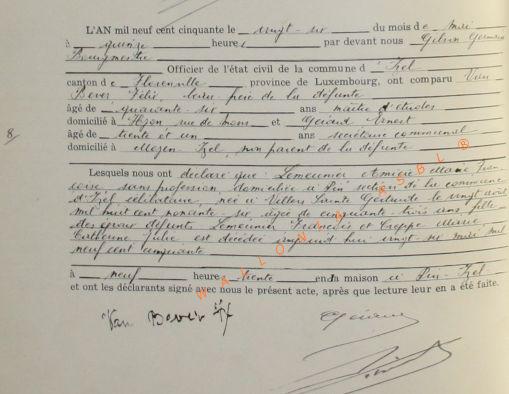 L'AN mil neuf cent cinquante le vingt-six du mois de mai
à quinze heures par devant nous Gilson Germain
Bourgmestre
Officier de l'état civil de la commune d'Izel
canton de Florenville province de Luxembourg, ont comparu Van
Bever Félix, beau-frère de la défunte
âgé de quarante-six ans maître d'études
domicilié à Hyon, rue de mons et Gérard Ernest
8/ âgé de trente et un ans secrétaire communal
domicilié à Moyen-Izel, non parent de la défunte
Lesquels nous ont déclaré que Lemeunier Marie
sans profession, domiciliée à Pin section de la commune
d'Izel célibataire, née à Villers Sainte Gertrude le vingt août
mil huit cent nonante-six, âgée de cinquante-trois ans fille
des époux défunts Lemeunier François et Marie
Catherine Julie est décédée aujourd'hui vingt-six mai mil
neuf cent cinquante
à neuf heure trente en da maison à Pin-Izel
et ont les déclarants signé avec nous le présent acte, après que lecture leur en a été faite.
WALLONIA ASBL
Van Bever